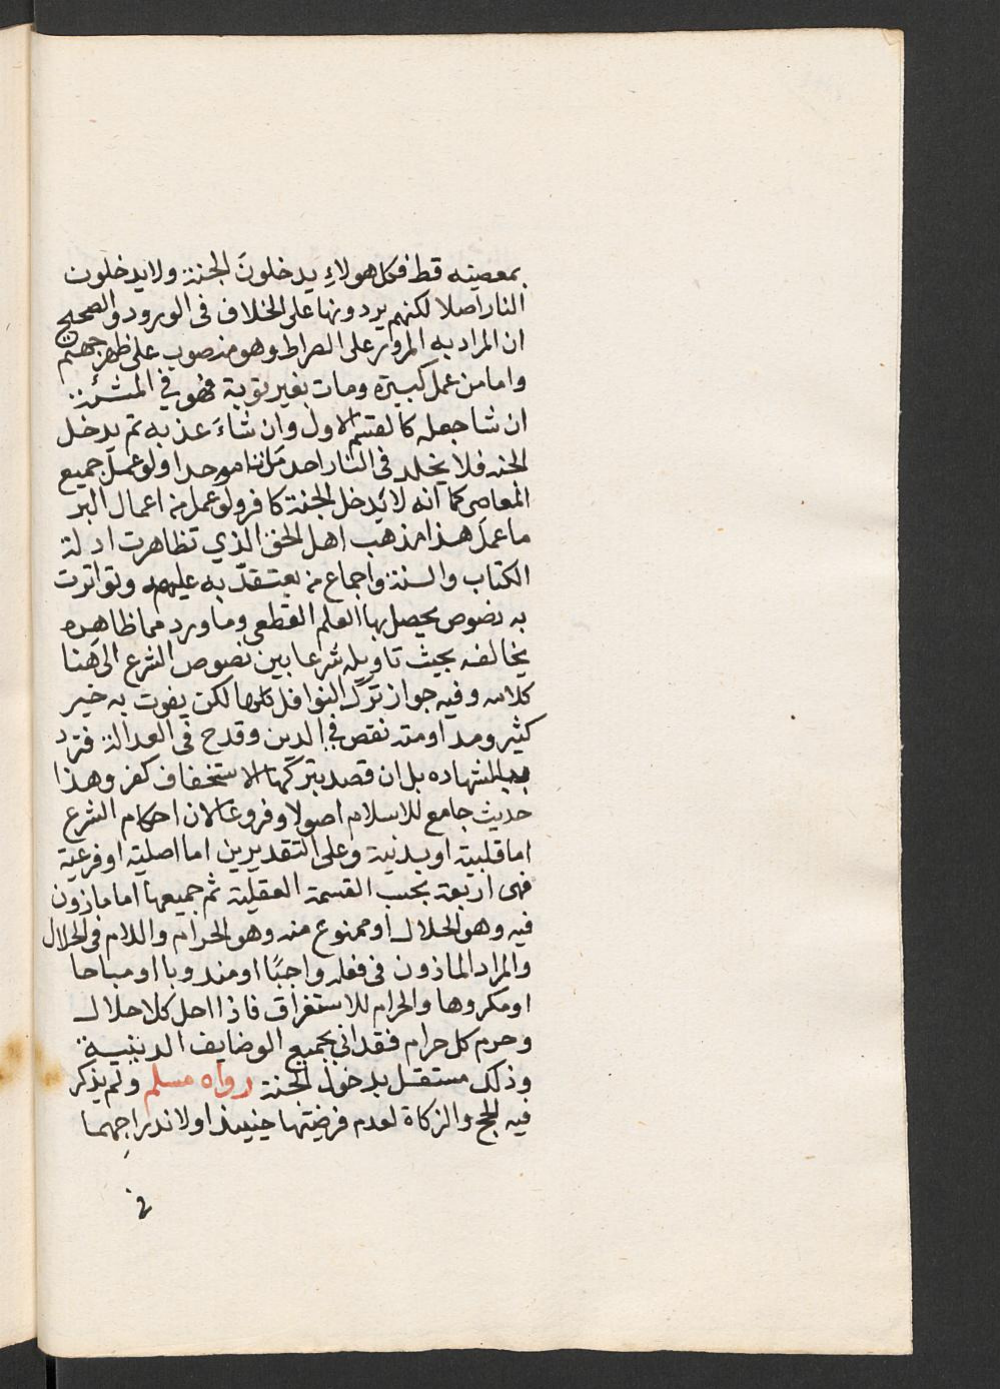 بمعصيته قط فكل هولاءِ يدخلونَ الجنة ولا يدخلون
النار اصلا لكنهم يردونها على الخلاف فى الورود والصحيح
ان المراد به المرور على الصراط وهو منصوب على ظهر جهنم
واما من عمل كبيرة ومات بغير توبة فهو في المشئة
ان شا جعله كالقسم الاول وان شاءَ عذبه ثم يدخل
الجنه فلا يخلد فى النار احد مات موحدا ولو عمل جميع
المعاصى كما انه لا يدخل الجنة كافر ولو عمل من اعمال البر
ما عمل هذا مذهب اهل الحق الذي تظاهرت ادلة
الكتاب والسنة واجماع من يعتقد به عليهم وتواترت
به نصوص يحصل بها العلم القطعى وما ورد مما ظاهره
يخالفه يجيث تاويله شرعا بين نصوص الشرع الى هنا
كلامه وفيه جواز ترك النوافل كلها لكن يفوت به خير
كثير ومداومته نقص في الدين وقدح فى العدالة فترد
الشهاده بل ان قصد بتركها الاستخفاف كفر وهذا
حديث جامع للاسلام اصولا وفروعا لان احكام الشرع
اما قلبية او بدنية وعلى التقديرين اما اصلية او فرعية
فهى اربعة بحسب القسمة العقلية ثم جميعها اما ماذون
فيه وهو الحلال او ممنوع منه وهو الحرام واللام فى الحلال
والمراد الماذون فى فعله واجبًا او مندوبا او مباحا
او مكروها والحرام للاستغراق فاذا احل كلا حلال
وحرم كل حرام فقد اتى بجميع الوضايف الدينية
وذلك مستقل بدخول الجنة رواه مسلم ولم يذكر
فيه الحج والزكاة لعدم فرضيتها حينيذ او لاندراجهما
في